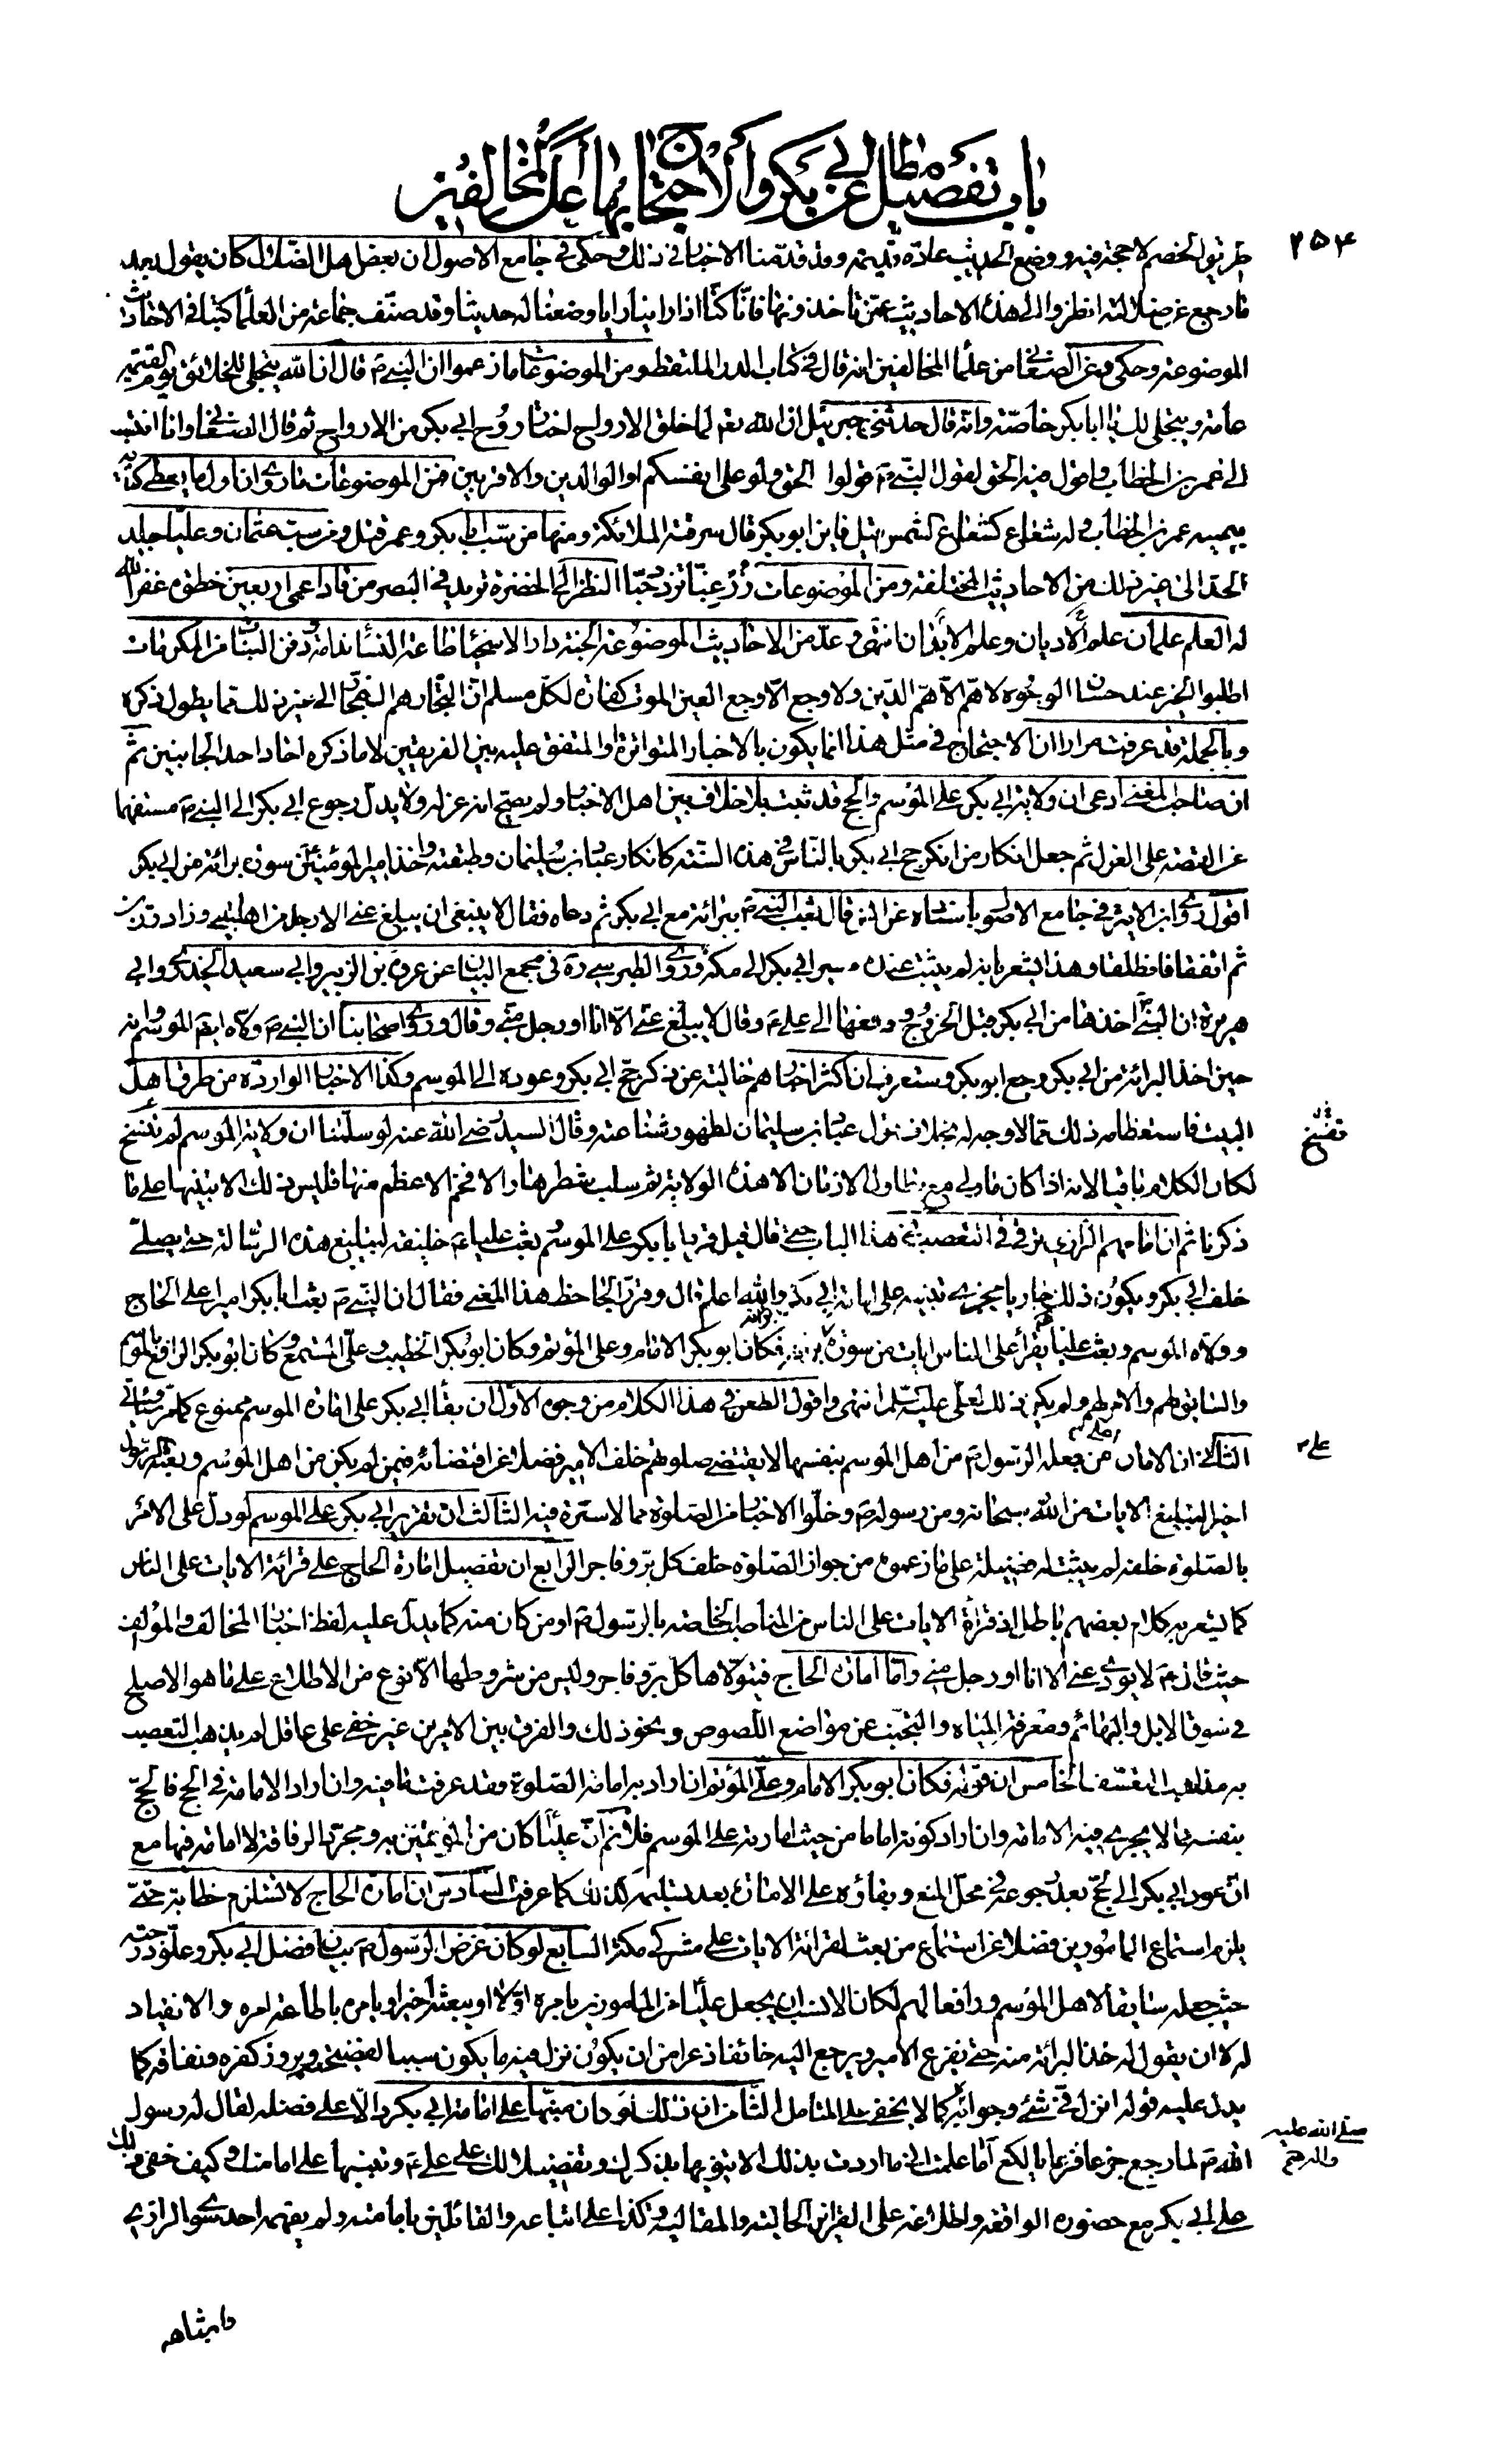 باب تفصيل مطاعن أبي بكر والاحتجاج بها على المخالفين
٢٥٤
طريق الخصم لا حجة فيه ووضع الحديث عادة قديمة وقد قدمنا الاخبار في ذلك وحكى في جامع الاصول ان بعض اهل الضلال كان يقول بعد
ما رجع عن ضلالته انظروا الى هذه الاحاديث عمن تاخذونها فانا كنا اذا راينا رايا وضعنا له حديثا وقد صنف جماعة من العلما كتبا في الاحاديث
الموضوعة وحكى عن الصغاني من علما المخالفين انه قال في كتاب الدر الملتقط ومن الموضوعات ما زعموا ان النبي ص قال ان الله يتجلى للخلائق يوم القيمة
عامة ويتجلى لك يا ابا بكر خاصة وانه قال حدثني جبرئيل ان الله تعم لما خلق الارواح اختار روح ابي بكر من الارواح ثم قال الصغاني وانا انتسب
الى عمر بن الخطاب واقول فيه الحق لقول النبي ص قولوا الحق ولو على انفسكم او الوالدين والاقربين فمن الموضوعات ما روى ان اول من يعطى كتابه
بيمينه عمر بن الخطاب وله شعاع كشعاع الشمس قيل فاين ابو بكر قال سرقته الملائكة ومنها من سب ابا بكر وعمر قتل ومن سب عثمان وعليا جلد
الحد الى غير ذلك من الاحاديث المختلفة ومن الموضوعات زر غبا تزدد حبا النظر الى الخضرة تزيد في البصر من قاد اعمى اربعين خطوة غفر الله
له العلم علمان علم الاديان وعلم الابدان انتهى وعد من الاحاديث الموضوعة الجنة دار الاسخياء طاعة النساء ندامة دفن البنات من المكرمات
اطلبوا الخير عند حسان الوجوه لا هم الا هم الدين ولا وجع الا وجع العين الموت كفارة لكل مسلم ان التجار هم الفجار الى غير ذلك مما يطول ذكره
وبالجملة قد عرفت مرارا ان الاحتجاج في مثل هذا انما يكون بالاخبار المتواترة او المتفق عليه بين الفريقين لا ما ذكره احاد احد الجانبين ثم
ان صاحب المغني ادعى ان ولاية ابي بكر على الموسم والحج قد ثبت بلا خلاف بين اهل الاخبار ولم يصح انه عزله ولا يدل رجوع ابي بكر الى النبي ص مستفهما
عن القصة على العزل ثم جعل انكار من انكر حج ابي بكر بالناس في هذه السنة كانكار عباد بن سليمان وطبقته واخذ امير المؤمنين سورة برائة من ابي بكر
اقول روى ابن الاثير في جامع الاصول باسناده عن انس قال بعث النبي ص ببرائة مع ابي بكر ثم دعاه فقال لا ينبغي ان يبلغ عني الا رجل من اهل بيتي وزاد رزين
ثم اتفقا فانطلقا وهذا يشعر بانه لم يثبت عنده مسير ابي بكر الى مكة وروى الطبرسي ره في مجمع البيان عن عروة بن الزبير وابي سعيد الخدري وابي
هريرة ان النبي اخذها من ابي بكر قبل الخروج ودفعها الى علي ع وقال لا يبلغ عني الا انا او رجل مني وقال وروى اصحابنا ان النبي ص ولاه ايضم الموسم وانه
حين اخذ البرائة من ابي بكر رجع ابو بكر وستعرف ان اكثر اخبارهم خالية عن ذكر حج ابي بكر وعوده الى الموسم وكذا الاخبار الواردة من طرق اهل
البيت ع فاستعظامه ذلك مما لا وجه له بخلاف قول عباد بن سليمان لظهور شناعته وقال السيد رضي الله عنه لو سلمنا ان ولاية الموسم لم تفسخ
لكان الكلام باقيا لانه اذا كان ما ولي مع تطاول الازمان الا هذه الولاية ثم سلب شطرها والافخم الاعظم منها فليس ذلك الا تنبيها على ما
ذكرنا ثم ان امامهم الرازي ترقى في التعصب في هذا الباب حتى قال قيل قرر ابا بكر على الموسم بعث عليا ع خليفة لتبليغ هذه الرسالة حتى يصلي
خلف ابي بكر ويكون ذلك جاريا مجرى تنبيه على امامة ابي بكر والله اعلم قال وقرر الجاحظ هذا المعنى فقال ان النبي ص بعث ابا بكر اميرا على الحاج
وولاه الموسم وبعث عليا يقرأ على الناس ايات من سورة برائة فكان ابو بكر الامام وعلي المؤتم وكان ابو بكر الخطيب وعلي المستمع وكان ابو بكر الرافع بالموسم
والسابق لهم والامر لهم ولم يكن ذلك لعلي عليه السلام انتهى واقول الطعن في هذا الكلام من وجوه الاول ان بقاء ابي بكر على امارة الموسم ممنوع كما مر وسياتي
الثاني ان الامارة على من جعله الرسول ص من اهل الموسم بنفسها لا يقتضي صلوتهم خلف الامير فضلا عن اقتضائه فيمن لم يكن من اهل الموسم وبعثه الرسول
اخيرا لتبليغ الايات من الله سبحانه ومن رسوله ص وخلو الاخبار من الصلوة مما لا سترة فيه الثالث ان تقرير ابي بكر على الموسم لو دل على الامر
بالصلوة خلفه لم يثبت له فضيلة على ما زعموه من جواز الصلوة خلف كل بر وفاجر الرابع ان تفضيل امارة الحاج على قرائة الايات على الناس
كما يشعر به كلام بعضهم باطل اذ قرأة الايات على الناس من المناصب الخاصة بالرسول ص او من كان منه كما يدل عليه لفظ اخبار المخالف والمؤلف
حيث قال ص لا يؤدي عني الا انا او رجل مني واما امارة الحاج فيتولاها كل بر وفاجر وليس من شروطها الا نوع من الاطلاع على ما هو الاصلح
في سوق الابل والبهائم ومعرفة المياه والتجنب عن مواضع اللصوص ونحو ذلك والفرق بين الامرين غير خفي على عاقل لم يذهب التعصب
به مذاهب التعسف الخامس ان قوله فكان ابو بكر الامام وعلي المؤتم ان اراد به امامة الصلوة فقد عرفت ما فيه وان اراد الامامة في الحج فالحج
بنفسه مما لا يجري فيه الامامة وان اراد كونه اماما من حيث امارته على الموسم فلا نم ان عليا كان من المؤتمين به ومجرد الرفاقة لا امامة فيها مع
ان عود ابي بكر الى الحج بعد رجوعه في محل المنع وبقاؤه على الامارة بعد تسليمه كذلك كما عرفت السادس ان امارة الحاج لا تستلزم خطابة حتى
يلزم استماع المامورين فضلا عن استماع من بعث لقرائة الايات على مشركي مكة السابع لو كان غرض الرسول ص بيان فضل ابي بكر وعلو درجته
حيث جعله سابقا لاهل الموسم ورافعا لهم لكان الانسب ان يجعل عليا من المامورين بامره اولا او يبعثه اخيرا ويامره باطاعة امره والانقياد
له لا ان يقول له خذ البرائة منه حتى يفزع الامير ويرجع اليه خائفا ذعرا من ان يكون نزل فيه ما يكون سببا لفضيحته وبروز كفره ونفاقه كما
يدل عليه قوله انزل في شئ وجوابه كما لا يخفى على المتامل الثامن ان ذلك لو دل منبها على امامة ابي بكر دالا على فضله لقال له رسول
الله ص لما رجع جزعا فزعا يا لكع اما علمت اني ما اردت بذلك الا تنويها بذكرك وتفضيلا لك على علي ع وتنبيها على امامتك وكيف خفي ذلك
على ابي بكر مع حضوره الواقعة واطلاعه على القراين الحالية والمقالية وكذا على اتباعه والقائلين بامامته ولم يفهمه احد سوى الرازي
تفسخ
صلى الله عليه
واله